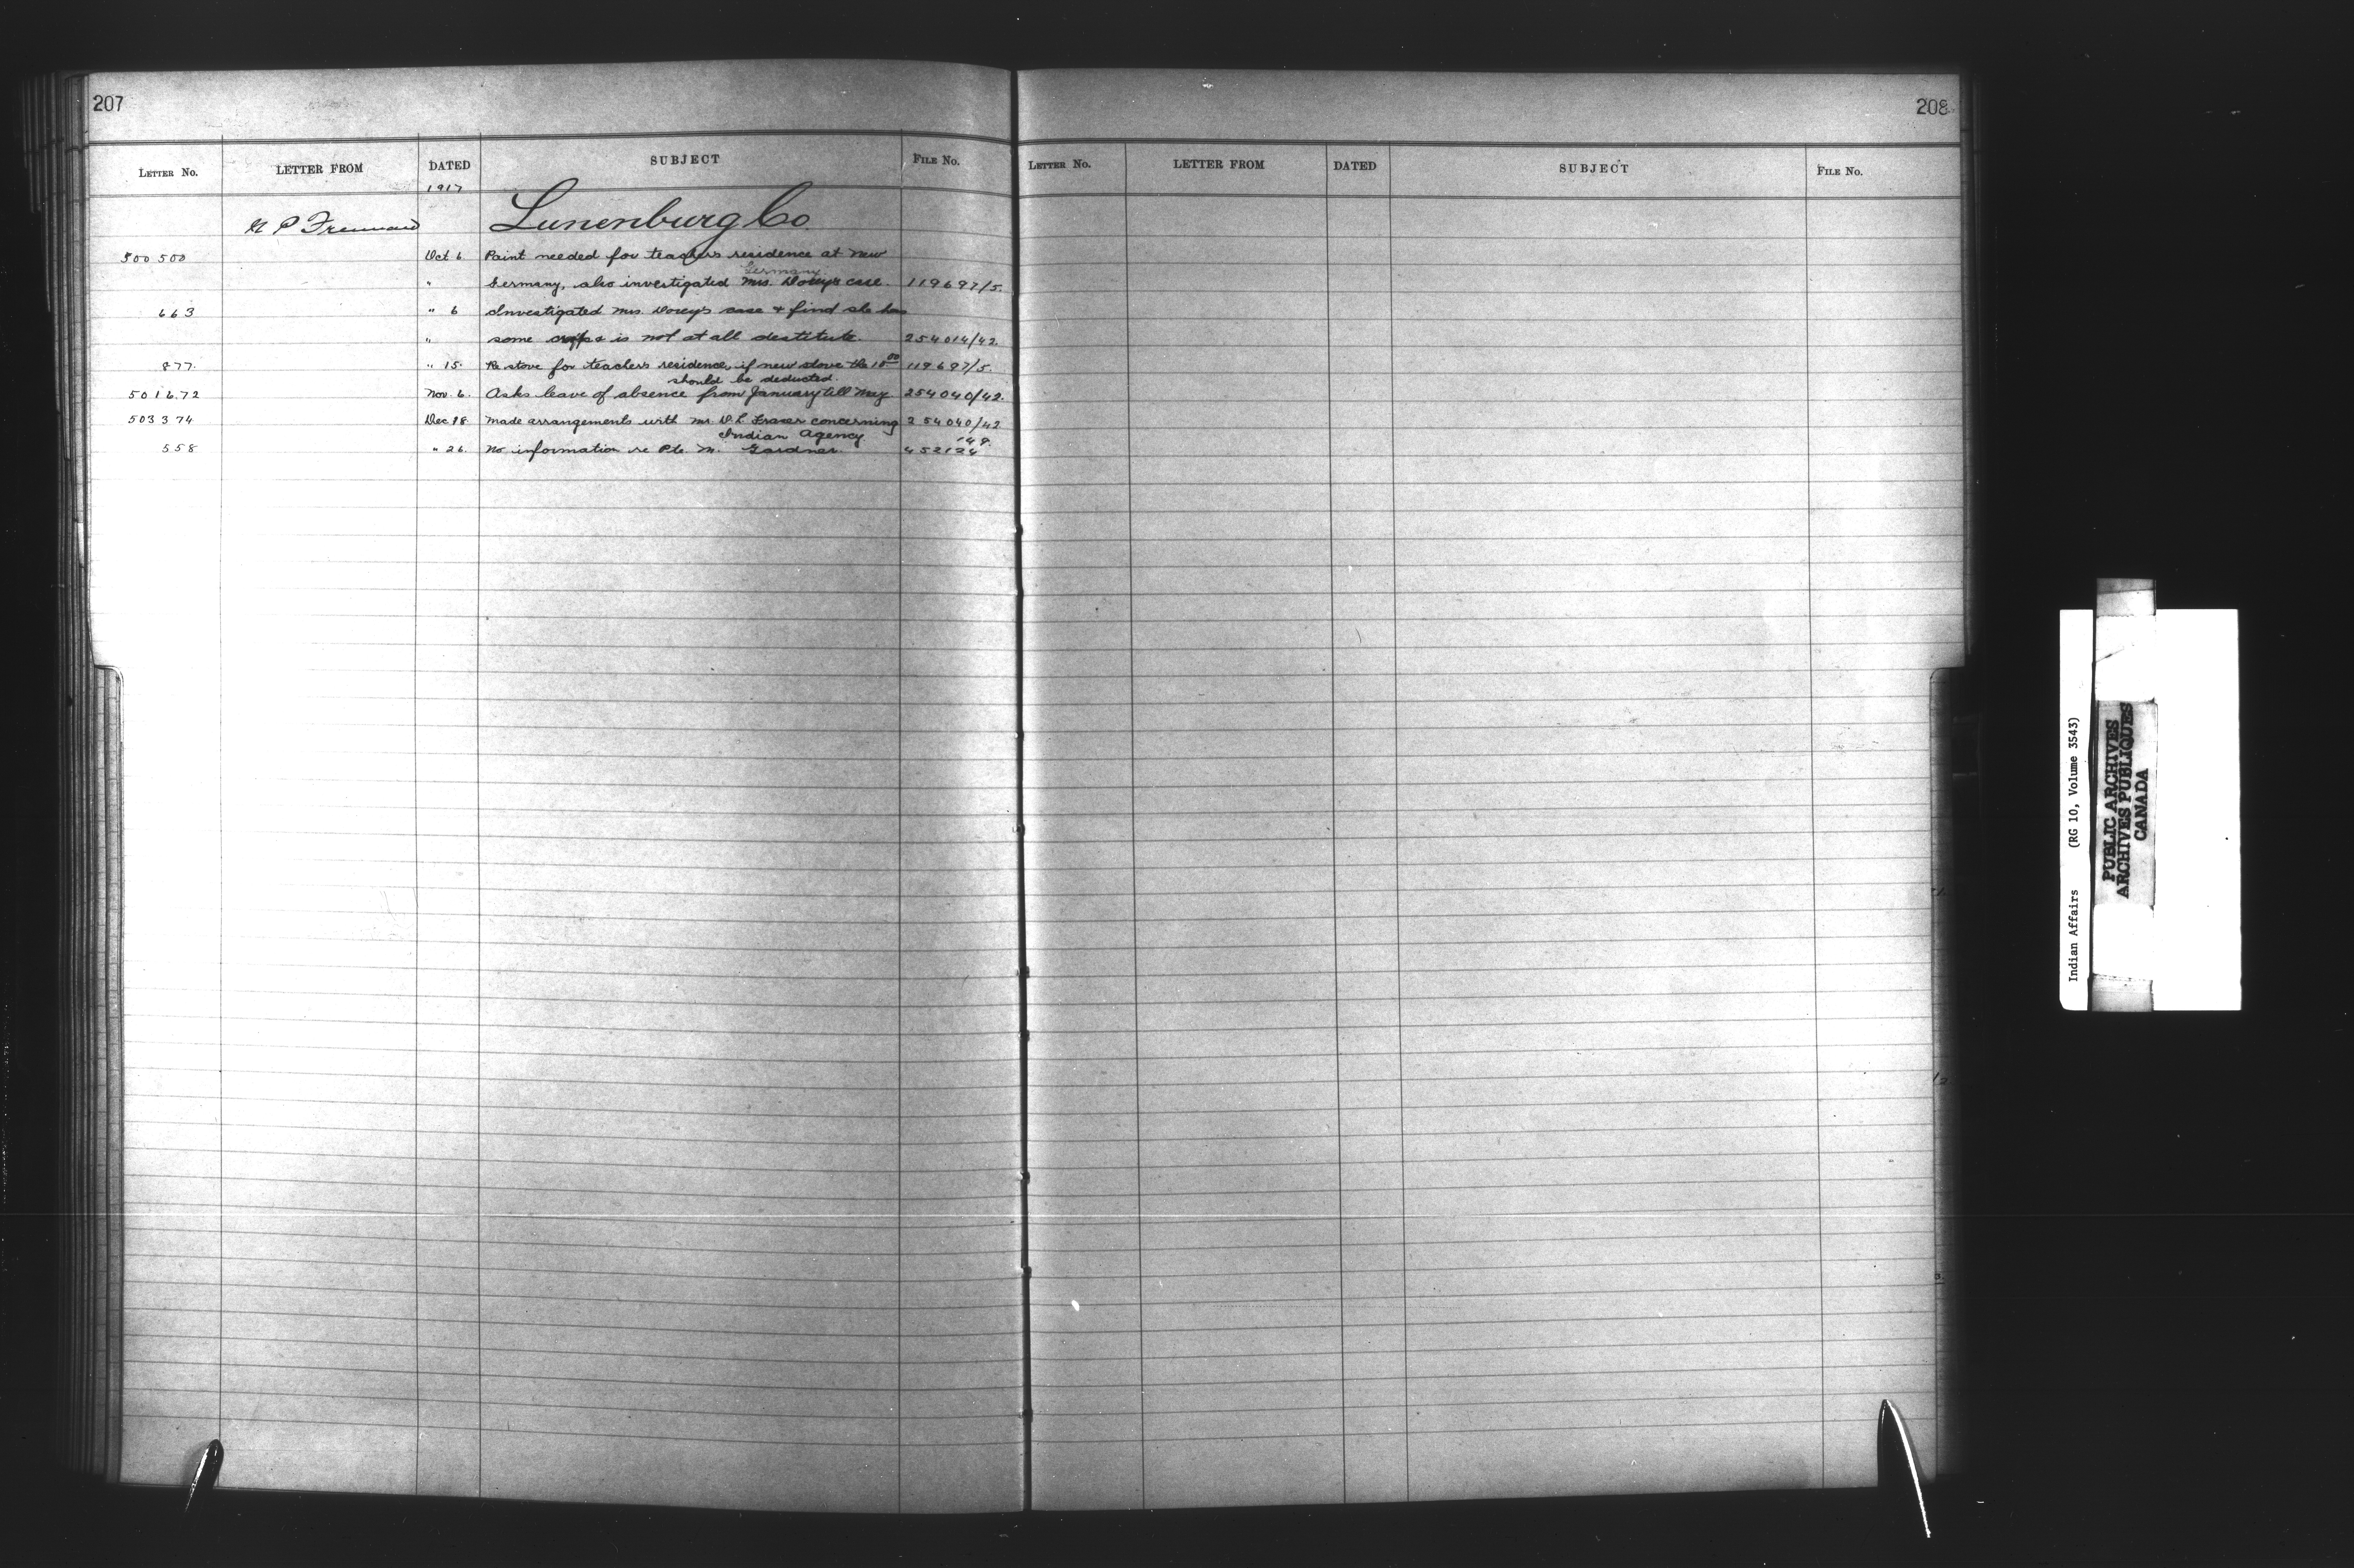 207
LETTER NO. LETTER FROM DATED SUBJECT FILE No.
1917
Lunenburg Co.
500 500 Oct 6 Paint needed for teachers residence at New
Germany
" Germany, also investigated Mrs. Dorey's case. 119697/5.
663 " 6 Investigated Mrs. Dorey's case & find she has
" some crops & is not at all destitute. 254014/42.
877. " 15. Re stove for teachers residence, if new stove the 15 00 119697/5.
should be deducted.
501672 Nov. 6. Asks leave of absence from January till May 254040/42.
503374 Dec 18 Made arrangements with Mr. D. L. Fraser concerning 254040/42
Indian Agency
558 " 26. No information re Pte. M. Gardner.
208
LETTER NO. LETTER FROM DATED SUBJECT FILE No.
Indian Affairs (RG 10, Volume 3543)
PUBLIC ARCHIVES
ARCHIVES PUBLIQUES
CANADA